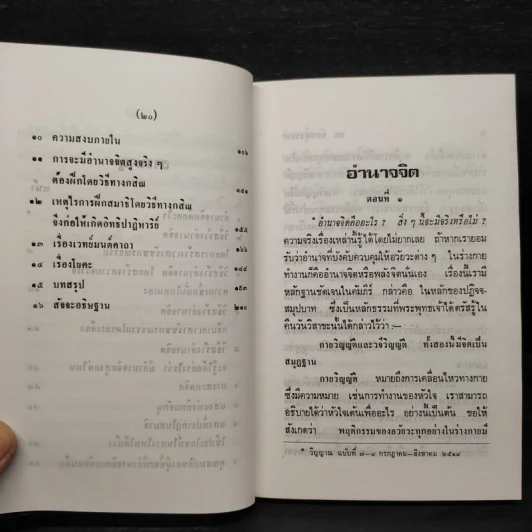 (๒๐)
๑๐ ความสงบภายใน ๑๐๖
๑๑ การจะมีอำนาจจิตสูงจริง ๆ
ต้องฝึกโดยวิธีทางกสิณ ๑๔๑
๑๒ เหตุไรการฝึกสมาธิโดยวิธีทางกสิณ
จึงก่อให้เกิดอิทธิปาฏิหาริย์ ๑๕๕
๑๓ เรื่องเวทย์มนต์คาถา ๑๖๖
๑๔ เรื่องโยคะ
๑๕ บทสรุป
๑๖ สัจจะอธิษฐาน ๒๑๐
อำนาจจิต
ตอนที่ ๑
* อำนาจจิตคืออะไร ? สิ่ง ๆ นี้จะมีจริงหรือไม่ ?
ความจริงเรื่องเหล่านี้รู้ได้โดยไม่ยากเลย ถ้าหากเรายอม
รับว่าอำนาจที่บังคับควบคุมให้อวัยวะต่าง ๆ ในร่างกาย
ทำงานก็คืออำนาจจิตหรือพลังจิตนั่นเอง เรื่องนี้เรามี
หลักฐานชัดเจนในคัมภีร์ กล่าวคือ ในหลักของปฏิจจ-
สมุปบาท ซึ่งเป็นหลักธรรมที่พระพุทธเจ้าได้ตรัสรู้ใน
คืนวันวิสาขะนั้นได้กล่าวไว้ว่า :—
กายวิญญัติและวจีวิญญัติ ทั้งสองนี้มีจิตเป็น
สมุฏฐาน
กายวิญญัติ หมายถึงการเคลื่อนไหวทางกาย
ซึ่งมีความหมาย เช่นการทำงานของหัวใจ เราสามารถ
อธิบายได้ว่าหัวใจเต้นเพื่ออะไร อย่างนี้เป็นต้น ขอให้
สังเกตว่า พฤติกรรมของอวัยวะทุกอย่างในร่างกายมี
* วิญญาณ ฉบับที่ ๗-๘ กรกฎาคม—สิงหาคม ๒๕๑๙